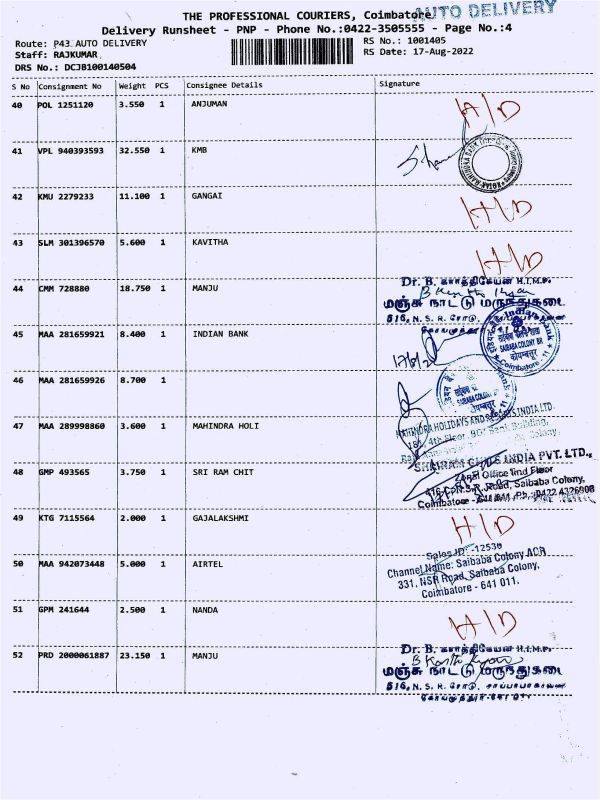 AUTO DELIVERY
THE PROFESSIONAL COURIERS, Coimbatore
Delivery Runsheet - PNP - Phone No.:0422-3505555 - Page No.:4
Route: P43 AUTO DELIVERY
RS No.: 1001405
Staff: RAJKUMAR
RS Date: 17-Aug-2022
DRS No.: DCJB100140504
S No Consignment No Weight PCS Consignee Details Signature
40 POL 1251120 3.550 1 ANJUMAN H/D
41 VPL 940393593 32.550 1 KMB
42 KMU 2279233 11.100 1 GANGAI H/D
43 SLM 301396570 5.600 1 KAVITHA H/D
44 CMM 728880 18.750 1 MANJU
Dr. B. கார்த்திகேயன் H.I.M.P.
மஞ்சு நாட்டு மருந்துகடை
516, N. S. R. ரோடு,
45 MAA 281659921 8.400 1 INDIAN BANK
Indian Bank
SAIBABA COLONY BR
Coimbatore - 11
46 MAA 281659926 8.700 1
SAIBABA COLONY BR
47 MAA 289998860 3.600 1 MAHINDRA HOLI
MAHINDRA HOLIDAYS AND RESORTS INDIA LTD.
4th Floor, Building,
Colony.
48 GMP 493565 3.750 1 SRI RAM CHIT
SHRIRAM CHITS INDIA PVT. LTD.,
Zonal Office IInd Floor
N.S.R. Road, Saibaba Colony,
Coimbatore - 641 011. Ph.: 0422 4326908
49 KTG 7115564 2.000 1 GAJALAKSHMI H/D
50 MAA 942073448 5.000 1 AIRTEL
Sales ID: -12530
Channel Name: Saibaba Colony ACR
331, NSR Road, Saibaba Colony,
Coimbatore - 641 011.
51 GPM 241644 2.500 1 NANDA H/D
52 PRD 2000061887 23.150 1 MANJU
Dr. B. கார்த்திகேயன் H.I.M.P.
மஞ்சு நாட்டு மருந்துகடை
516, N. S. R. ரோடு, சாய்பாபாகாலனி